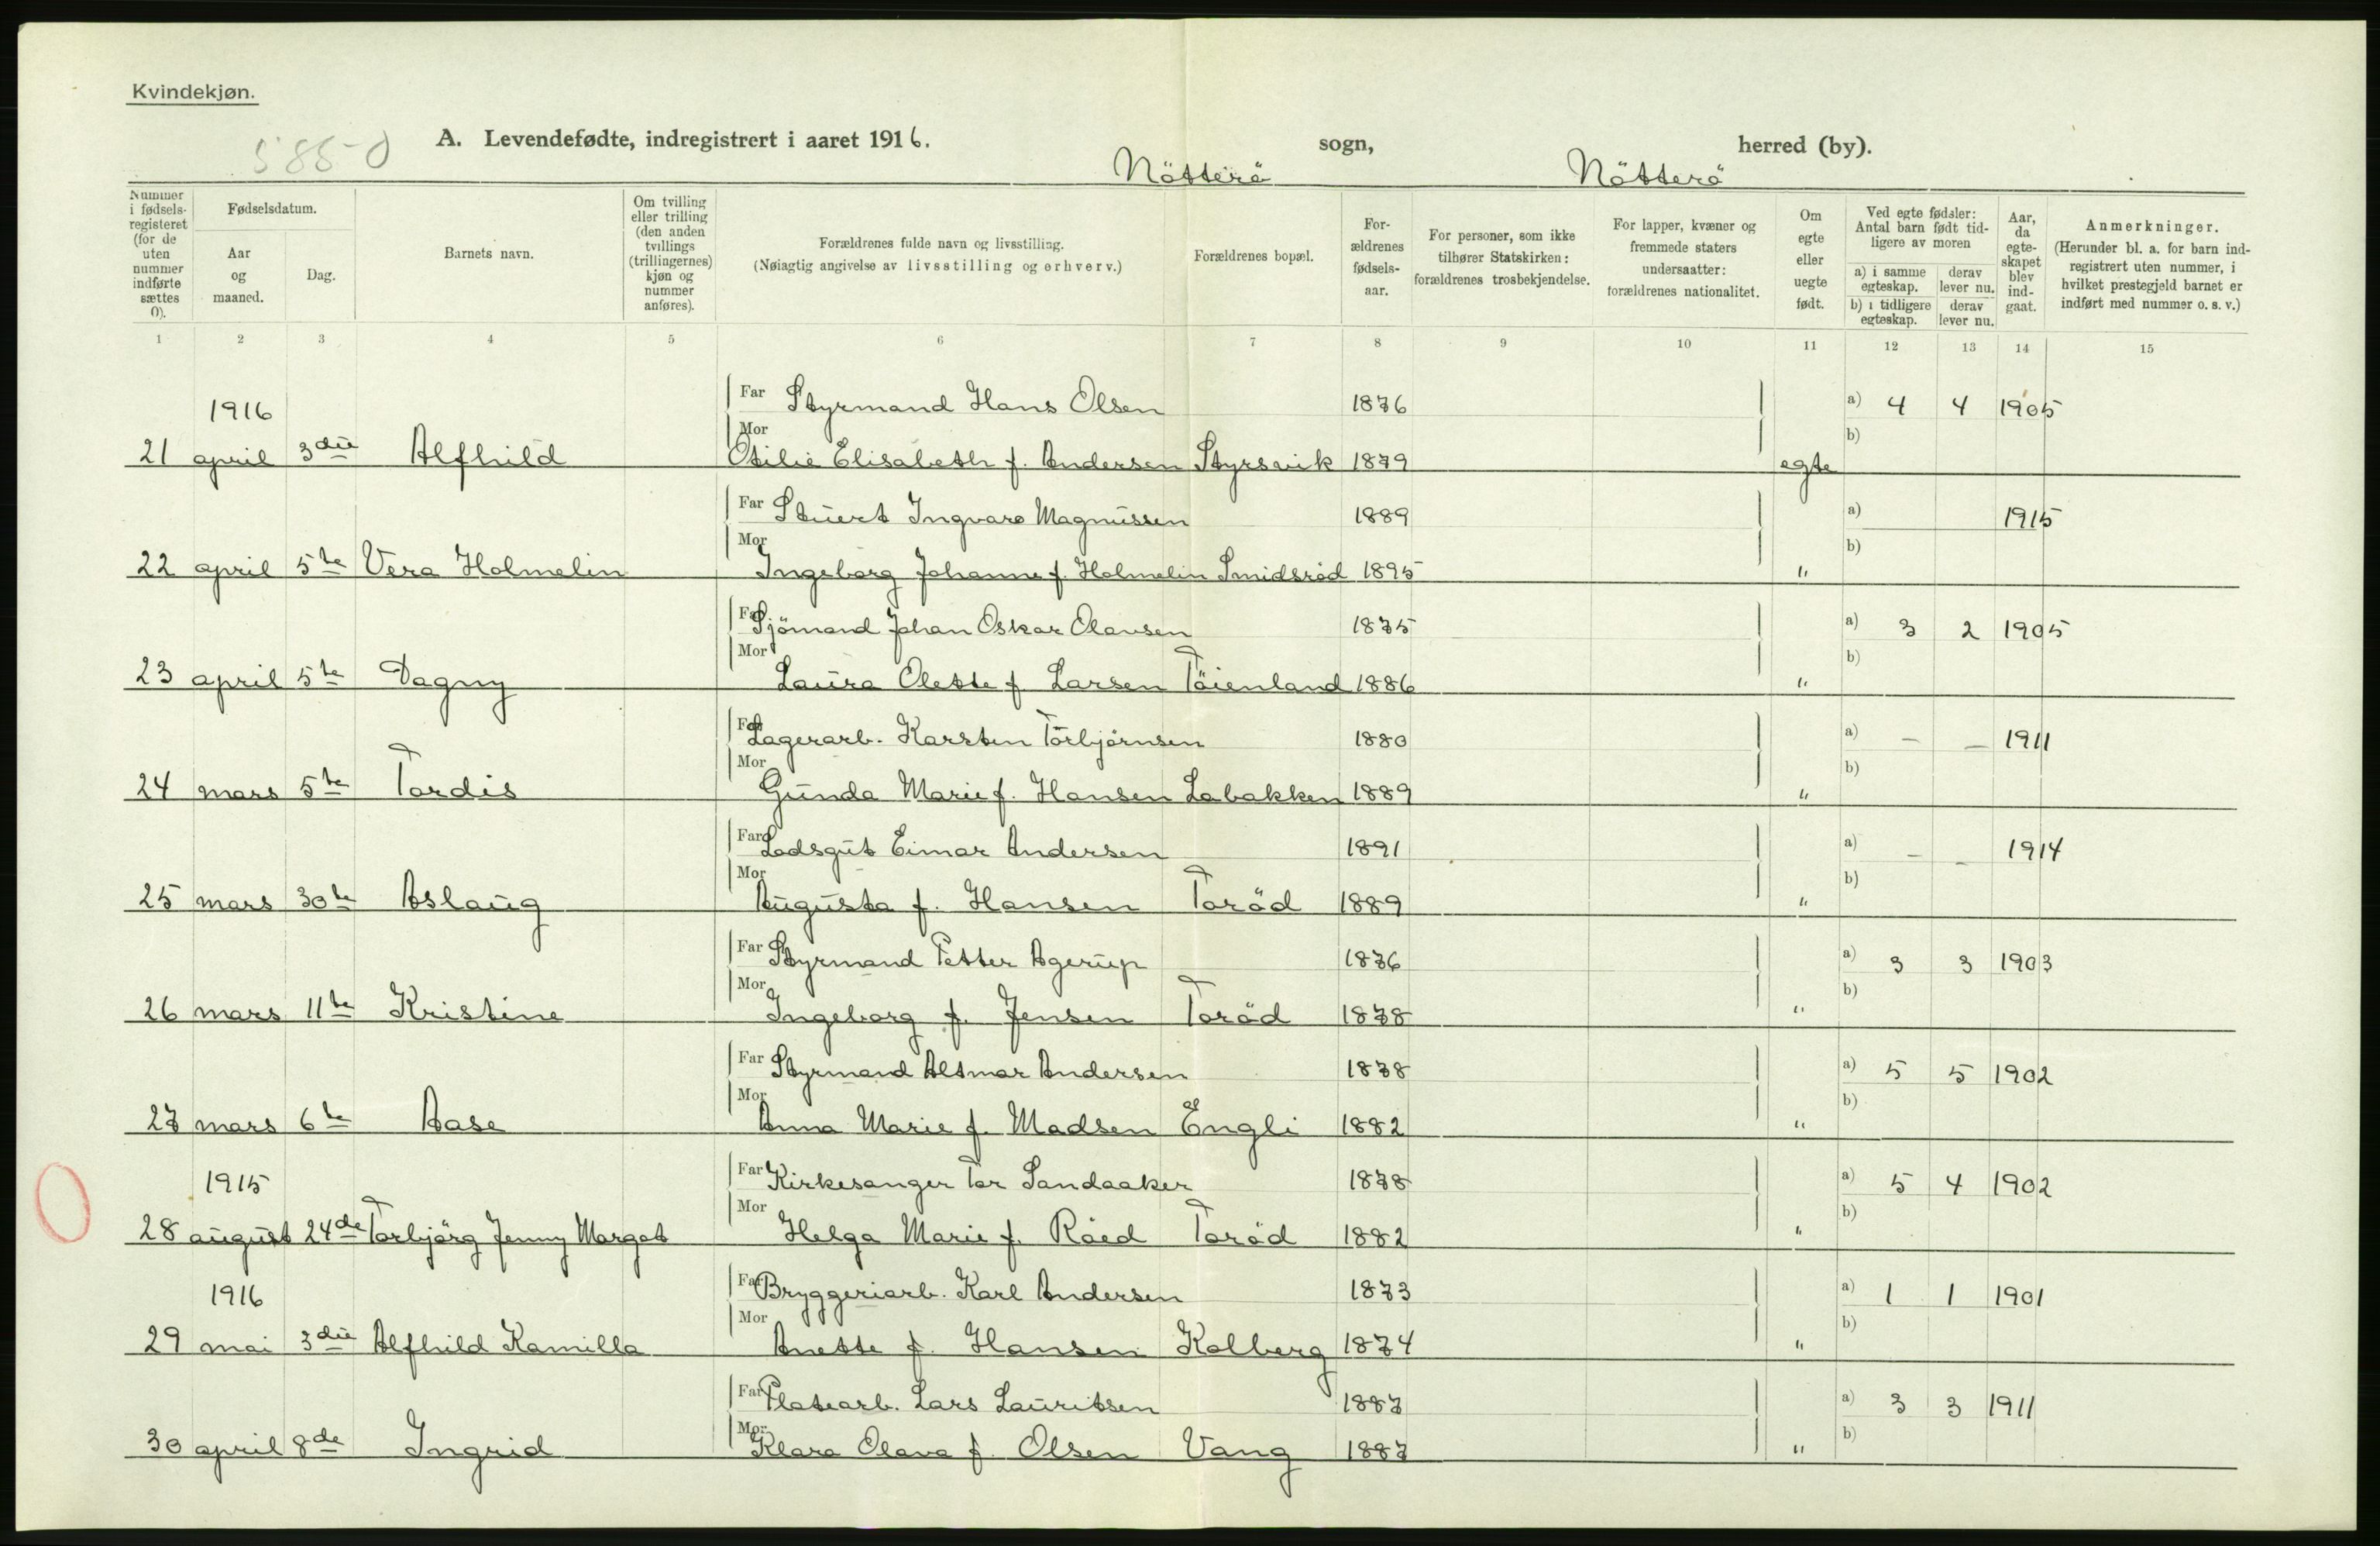 Kvindekjøn.
5880
A. Levendefødte, indregistrert i aaret 1916.
Nötterö sogn, Nötterö herred (by).
Nummer i fødsels-registeret (for de uten nummer indførte sættes 0).
Fødselsdatum.
Aar og maaned.
Dag.
Barnets navn.
Om tvilling eller trilling (den anden tvillings (trillingernes) kjøn og nummer anføres).
Forældrenes fulde navn og livsstilling.
(Nøiagtig angivelse av livsstilling og erhverv.)
Forældrenes bopæl.
For-ældrenes fødsels-aar.
For personer, som ikke tilhører Statskirken: forældrenes trosbekjendelse.
For lapper, kvæner og fremmede staters undersaatter: forældrenes nationalitet.
Om egte eller uegte født.
Ved egte fødsler: Antal barn født tid-ligere av moren
a) i samme egteskap.
derav lever nu.
b) i tidligere egteskap.
derav lever nu.
Aar, da egte-skapet blev ind-gaat.
Anmerkninger.
(Herunder bl. a. for barn ind-registrert uten nummer, i hvilket prestegjeld barnet er indført med nummer o. s. v.)
1 2 3 4 5 6 7 8 9 10 11 12 13 14 15
1916 Far Styrmand Hans Olsen 1876 a) 4 4 1905
21 april 3die Alfhild Mor Otilie Elisabeth f. Andersen Styrsvik 1879 egte b)
Far Stuert Ingvare Magnussen 1889 a) 1915
22 april 5te Vera Holmelin Mor Ingeborg Johanne f. Holmelin Smidsröd 1895 " b)
Far Sjömand Johan Oskar Olavsen 1875 a) 3 2 1905
23 april 5te Dagny Mor Laura Olette f. Larsen Töienland 1886 " b)
Far Lagerarb. Karsten Torbjörnsen 1880 a) – – 1911
24 mars 5te Tordis Mor Gunda Marie f. Hansen Labakken 1889 " b)
Far Lodsgut Eimar Andersen 1891 a) – – 1914
25 mars 30te Aslaug Mor Augusta f. Hansen Toröd 1889 " b)
Far Styrmand Petter Agerup 1876 a) 3 3 1903
26 mars 11te Kristine Mor Ingeborg f. Jensen Toröd 1878 " b)
Far Styrmand Altmar Andersen 1878 a) 5 5 1902
27 mars 6te Aase Mor Anna Marie f. Madsen Engli 1882 " b)
1915 Far Kirkesanger Tor Sandaaker 1878 a) 5 4 1902
28 august 24de Torbjörg Jenny Margot Mor Helga Marie f. Röed Toröd 1882 " b)
1916 Far Bryggeriarb. Karl Andersen 1873 a) 1 1 1901
29 mai 3die Alfhild Kamilla Mor Anette f. Hansen Kolberg 1874 " b)
Far Platearb. Lars Lauritsen 1887 a) 3 3 1911
30 april 8de Ingrid Mor Klara Olava f. Olsen Vang 1887 " b)